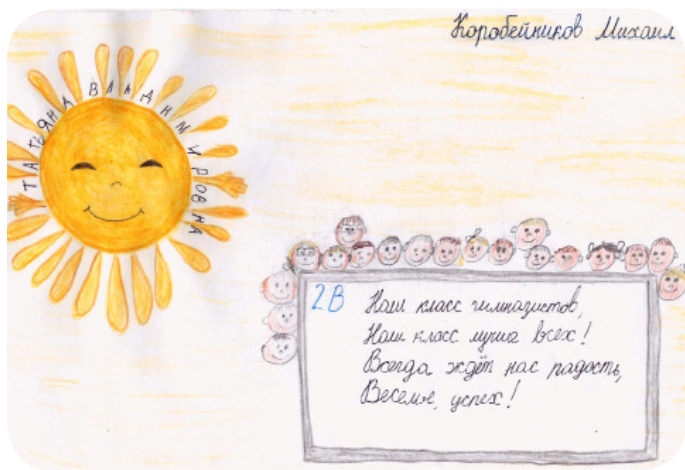 Коробейников Михаил
ТАТЬЯНА ВЛАДИМИРОВНА
2В
Наш класс гимназистов,
Наш класс лучше всех!
Всегда ждёт нас радость,
Веселье, успех!